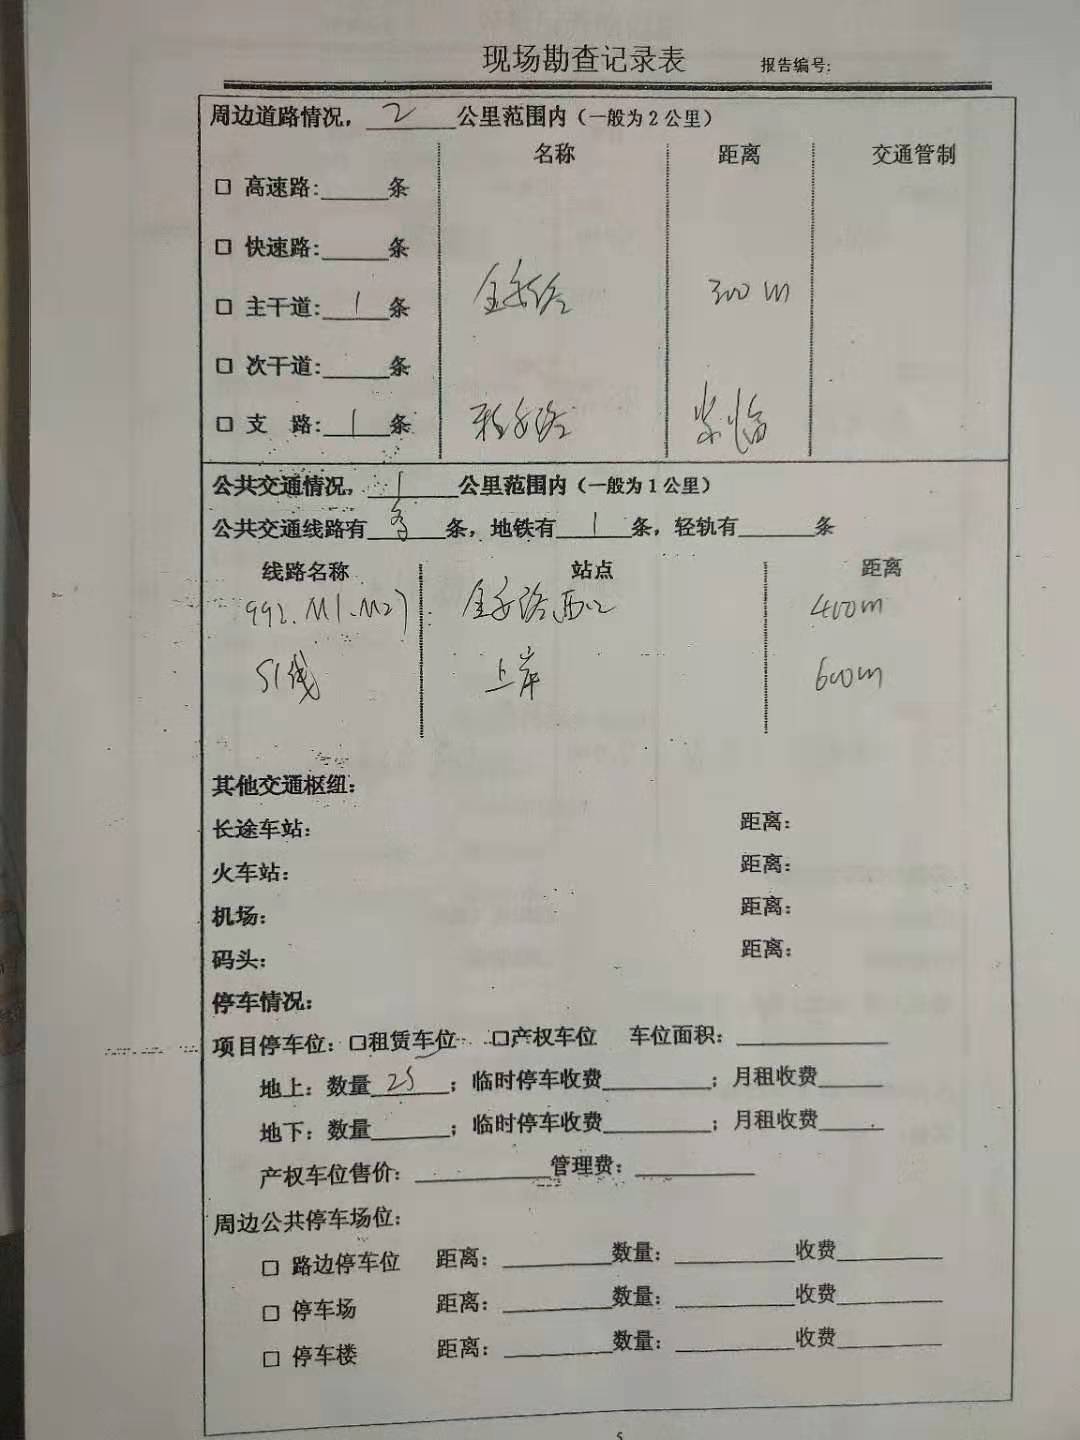 现场勘查记录表 报告编号:
周边道路情况，2公里范围内（一般为2公里）
名称 距离 交通管制
□ 高速路:______条
□ 快速路:______条
□ 主干道:1条 金安路 300m
□ 次干道:______条
□ 支 路:1条 路 紧临
公共交通情况，1公里范围内（一般为1公里）
公共交通线路有多条，地铁有1条，轻轨有______条
线路名称 站点 距离
992.M1.M27 金安路西口 400m
S1线 上岸 600m
其他交通枢纽：
长途车站： 距离：
火车站： 距离：
机场： 距离：
码头： 距离：
停车情况：
项目停车位：□租赁车位 □产权车位 车位面积：______
地上：数量25；临时停车收费______；月租收费______
地下：数量______；临时停车收费______；月租收费______
产权车位售价：______管理费：______
周边公共停车场位：
□ 路边停车位 距离：______数量：______收费______
□ 停车场 距离：______数量：______收费______
□ 停车楼 距离：______数量：______收费______
5